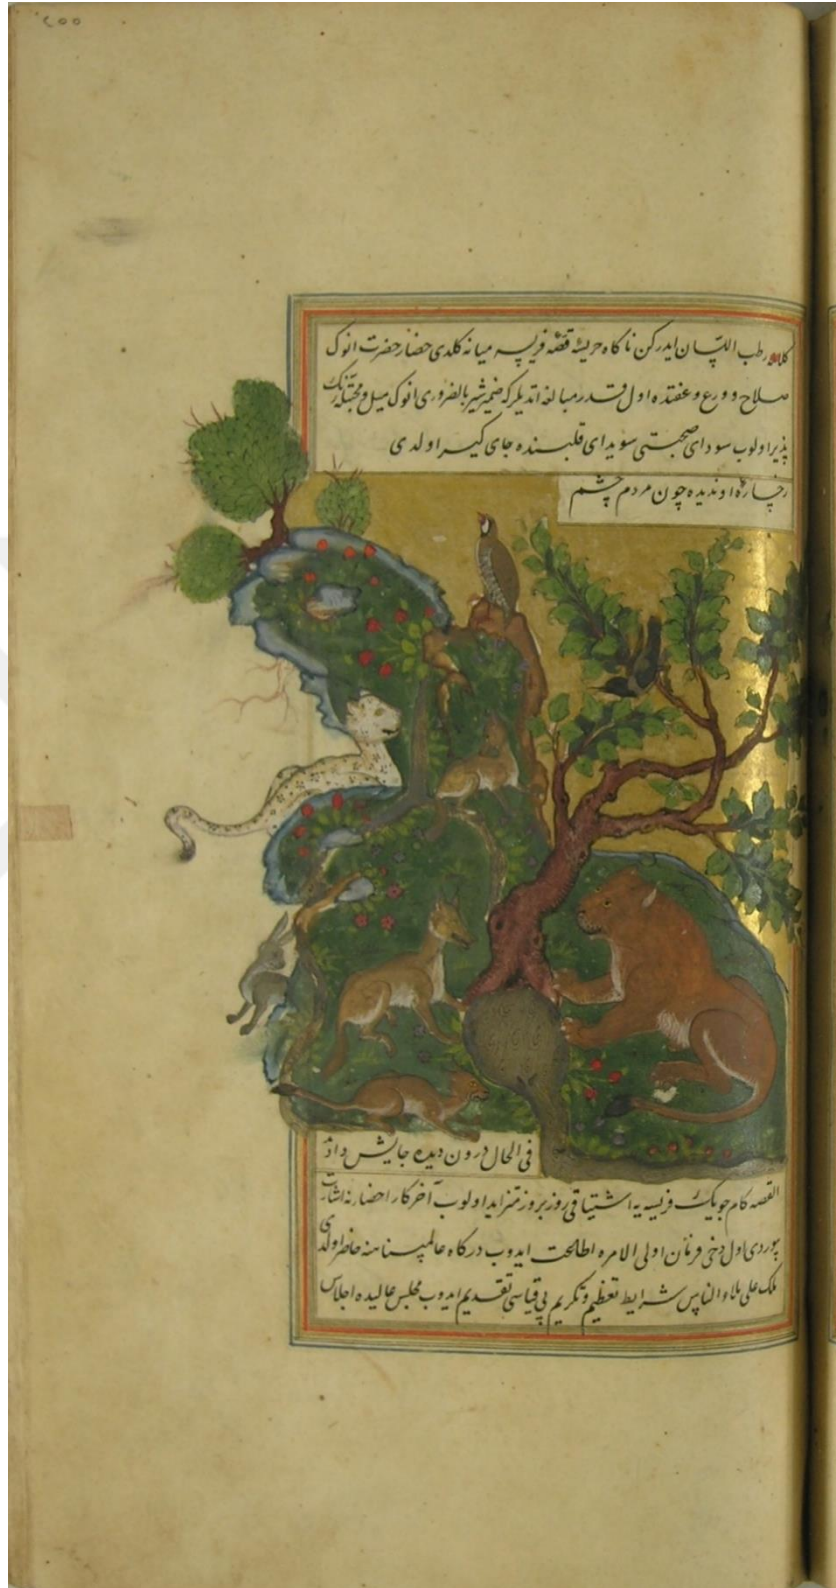 رطب اللسان ایدرکن ناکاه حریشه قصّهٔ فریسه میانه کلدی حضار حضرت انوك
صلاح و ورع و عفتده اول قدر مبالغه اتدیلرکه ضمیر شیر بالضروری انوك میل و محبتنه رنك
پذیر اولوب سودای صحبتی سویدای قلبنده جای کیر اولدی
رخساره او ندیده چون مردم چشم
فی الحال درون دیده جایش داد
القصه کامجوینك فریسه یه اشتیاقی روز بروز متزاید اولوب آخر کار احضارنه اشارت
بیوردی اول دخی فرمان اولی الامره اطاعت ایدوب درکاه عالمپناهنه حاضر اولدی
ملك علی ملاء الناس شرایط تعظیم و تکریم بی قیاسی تقدیم ایدوب مجلس عالیده اجلاس